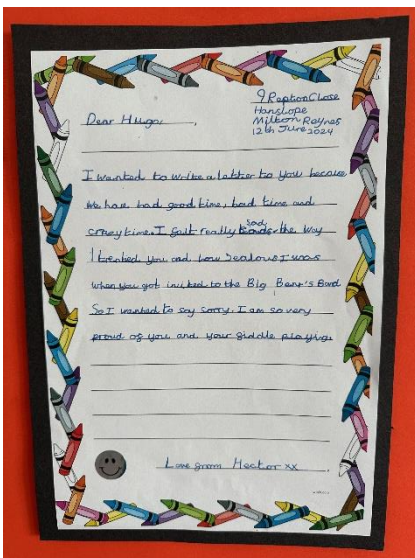 9 Repton Close
Hanslope
Milton Keynes
12th June 2024
Dear Hugo,
I wanted to write a letter to you because
We have had good time, bad time and
crazy time. I felt really sad the way
I treated you and how Jealous I was
when you got invited to the Big Bear's Band
So I wanted to say sorry. I am so very
proud of you and your fiddle playing.
Love from Hector xx